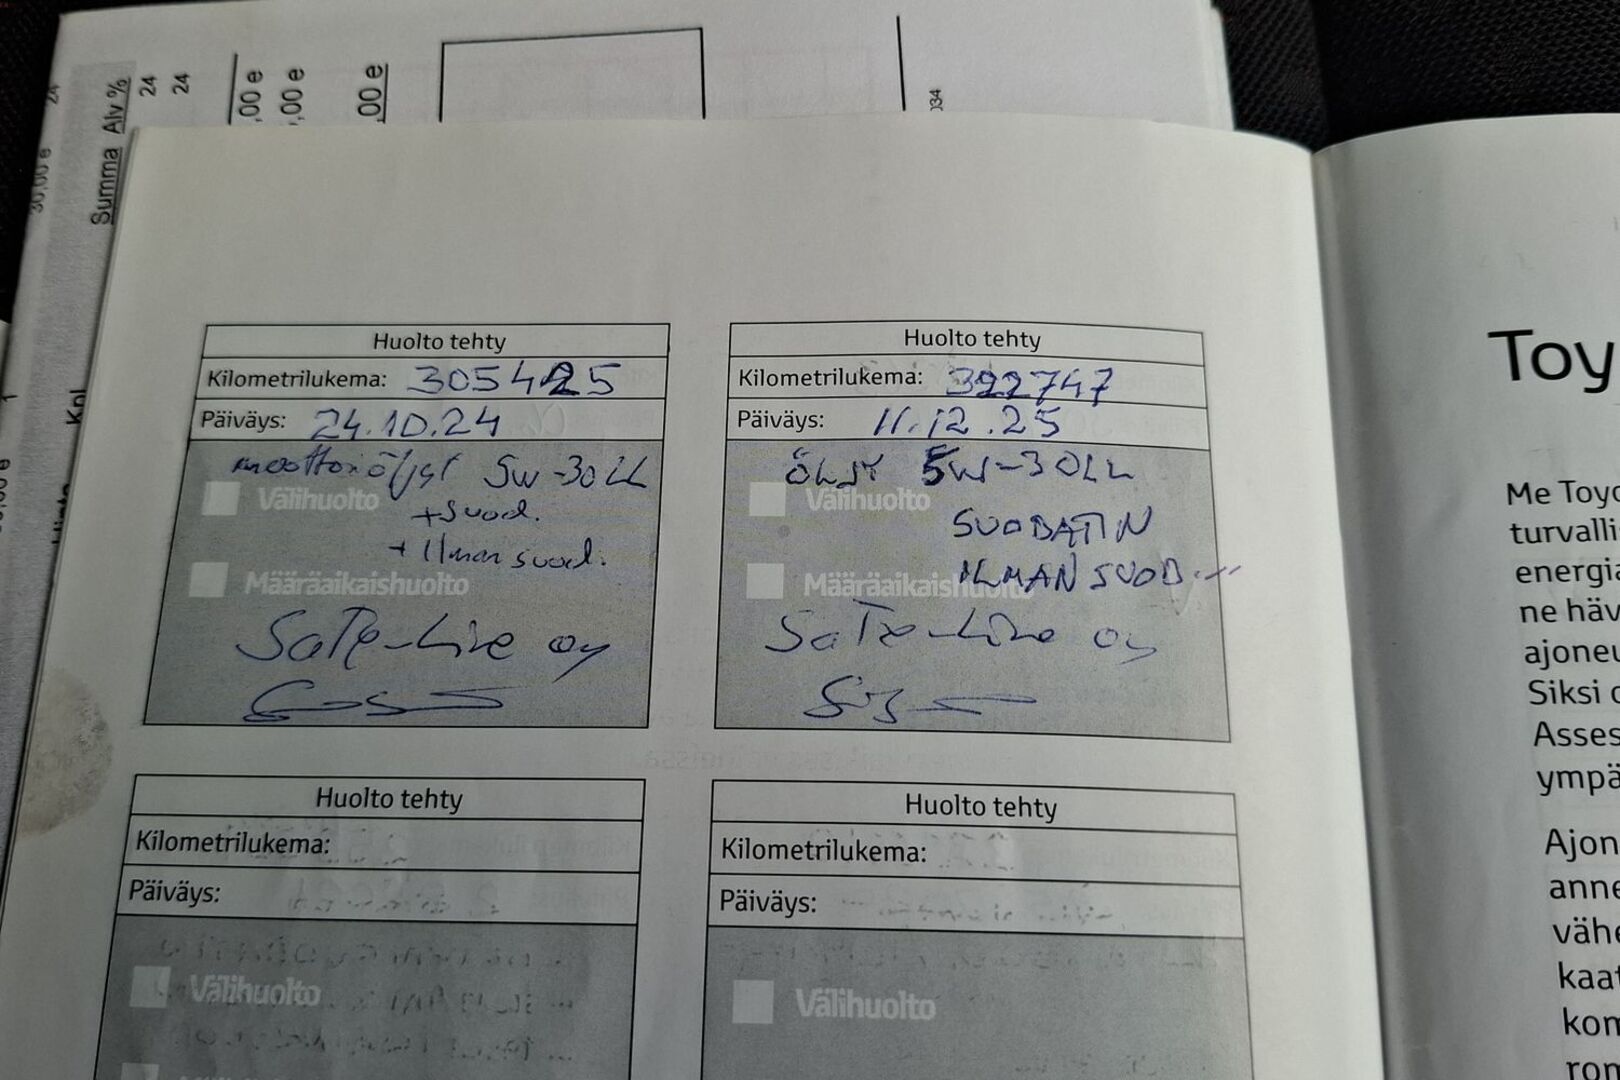 30,00 e 24
Summa Alv %
24
24
,00 e
,00 e
,00 e
034
Kpl
Huolto tehty
Kilometrilukema: 305425
Päiväys: 24.10.24
moottoriöljyt 5W-30LL
Välihuolto
+suod.
+ Ilman suod.
Määräaikaishuolto
SaTe-Line oy
Huolto tehty
Kilometrilukema: 322747
Päiväys: 11.12.25
ÖLJY 5W-30LL
Välihuolto
SUODATIN
ILMAN SUOD.
Määräaikaishuolto
SaTe-Line oy
Huolto tehty
Kilometrilukema:
Päiväys:
Välihuolto
Huolto tehty
Kilometrilukema:
Päiväys:
Välihuolto
Toy
Me Toyo
turvalli
energia
ne häv
ajoneu
Siksi o
Asses
ympä
Ajon
anne
vähe
kaat
kom
rom